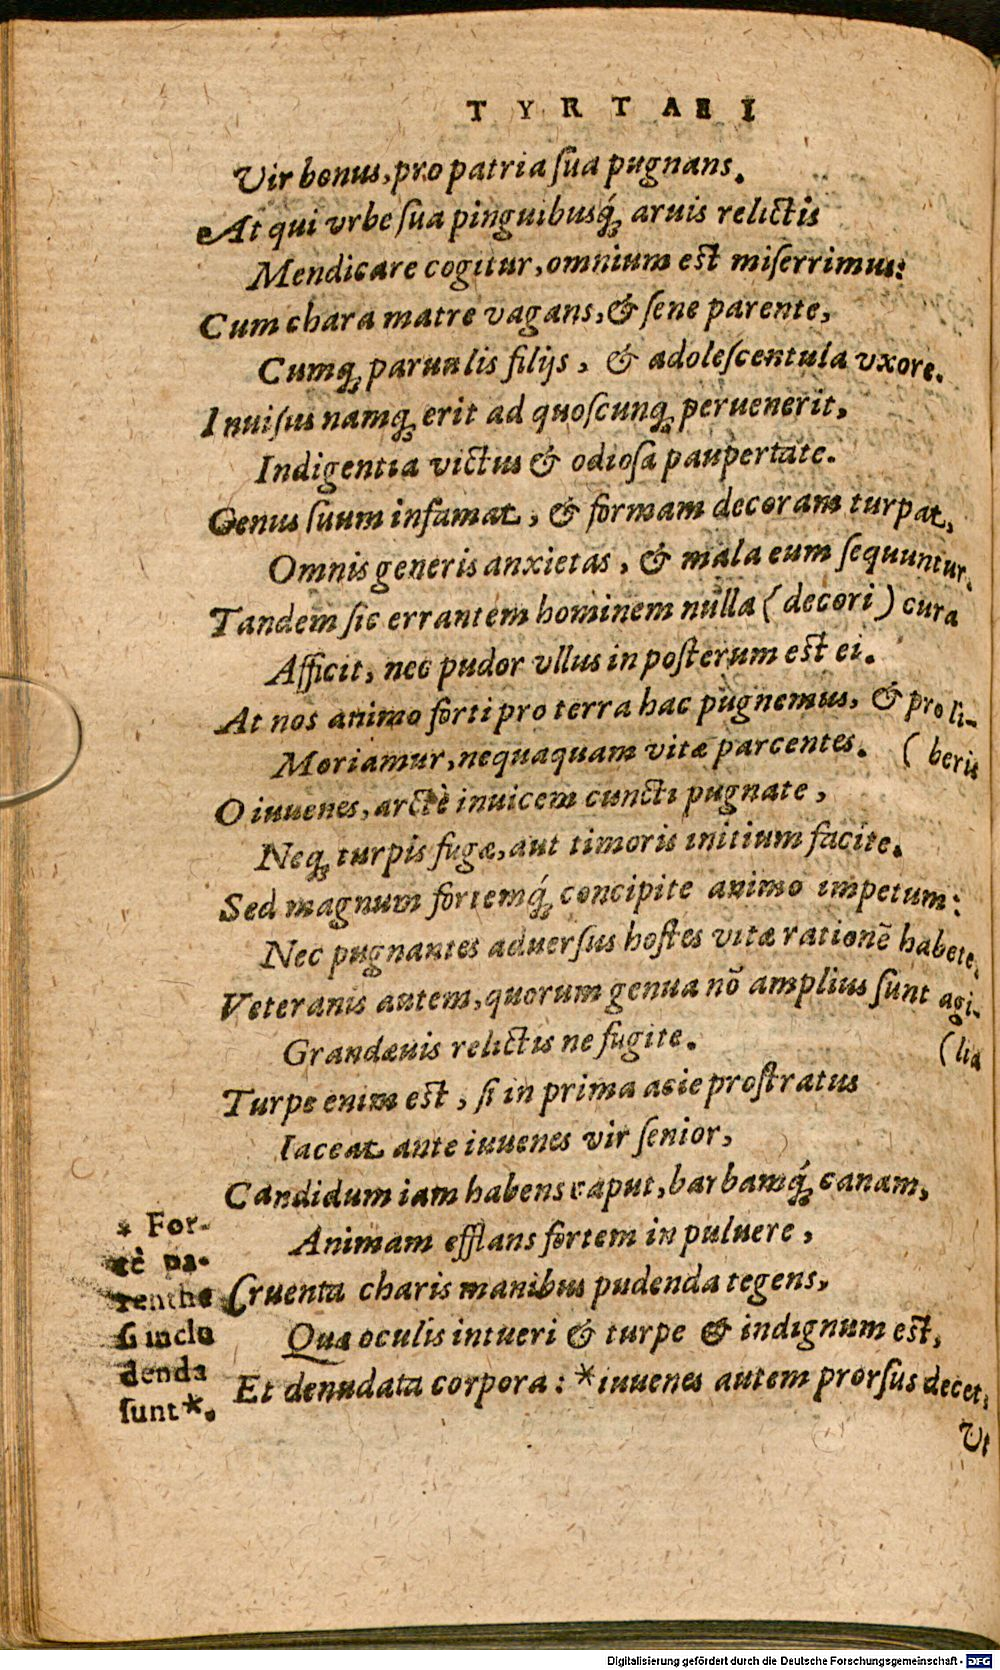 TYRTAEI
Vir bonus, pro patria sua pugnans.
At qui vrbe sua pinguibusq́; aruis relictis
Mendicare cogitur, omnium est miserrimus:
Cum chara matre vagans, & sene parente,
Cumq; paruulis filijs, & adolescentula vxore.
Inuisus namq; erit ad quoscunq; peruenerit,
Indigentia victus & odiosa paupertate.
Genus suum infamat, & formam decoram turpat,
Omnis generis anxietas, & mala eum sequuntur.
Tandem sic errantem hominem nulla (decori) cura
Afficit, nec pudor vllus in posterum est ei.
At nos animo forti pro terra hac pugnemus, & pro li-
Moriamur, nequaquam vitæ parcentes. (beris
O iuuenes, arctè inuicem cuncti pugnate,
Neq; turpis fugæ, aut timoris initium facite.
Sed magnum fortemq́; concipite animo impetum:
Nec pugnantes aduersus hostes vitæ rationē habete.
Veteranis autem, quorum genua nō amplius sunt agi-
Grandæuis relictis ne fugite. (lia
Turpe enim est, si in prima acie prostratus
Iaceat ante iuuenes vir senior,
Candidum iam habens caput, barbamq́; canam,
Animam efflans fortem in puluere,
Cruenta charis manibus pudenda tegens,
Quæ oculis intueri & turpe & indignum est,
Et denudata corpora: *iuuenes autem prorsus decet,
Vt
* For-
tè pa-
renthe
si inclu
denda
sunt*.
Digitalisierung gefördert durch die Deutsche Forschungsgemeinschaft - DFG